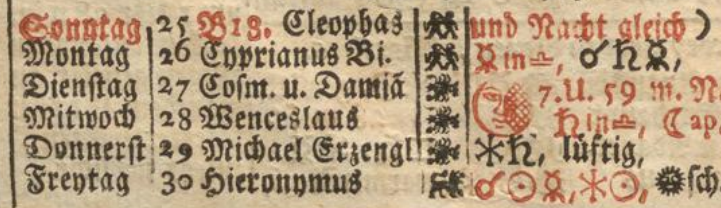 Sonntag 25 B18. Cleophas und Nacht gleich)
Montag 26 Cyprianus Bi. ☿ in ♎, ☌ ♄ ☿,
Dienstag 27 Cosm. u. Damiā 7. U. 59 m. N.
Mitwoch 28 Wenceslaus ♄ in ♎, ☾ ap.
Donnerst 29 Michael Erzengl ⚹ ♄, lüftig,
Freytag 30 Hieronymus ☌ ☉ ☿, ⚹ ☉, sch.